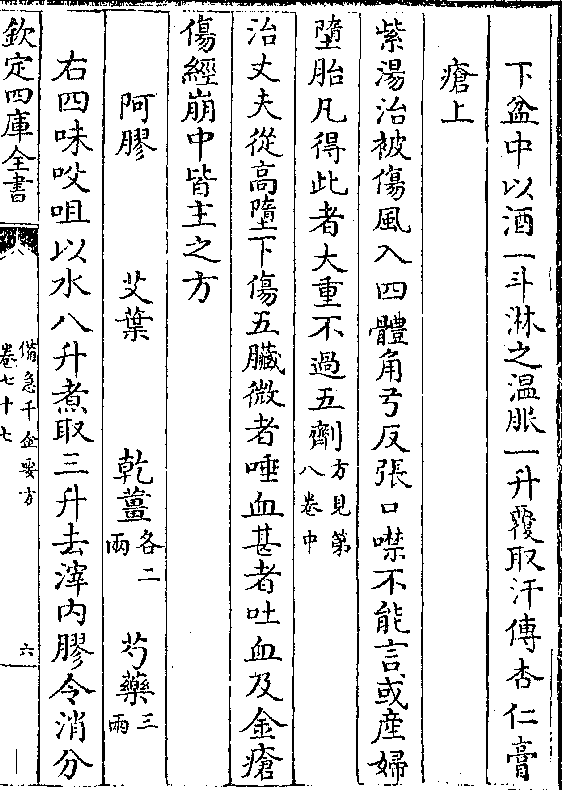 下盆中以酒一斗淋之温服一升覆取汗傅杏仁膏
瘡上
紫湯治被傷風入四體角弓反張口噤不能言或産婦
墮胎凡得此者大重不過五劑方見第八卷中
治丈夫從高墮下傷五臟微者唾血甚者吐血及金瘡
傷經崩中皆主之方
阿膠 艾葉 乾薑各二兩 芍藥三兩
右四味㕮咀以水八升煮取三升去滓内膠令消分
欽定四庫全書 備急千金要方 卷七十七 六